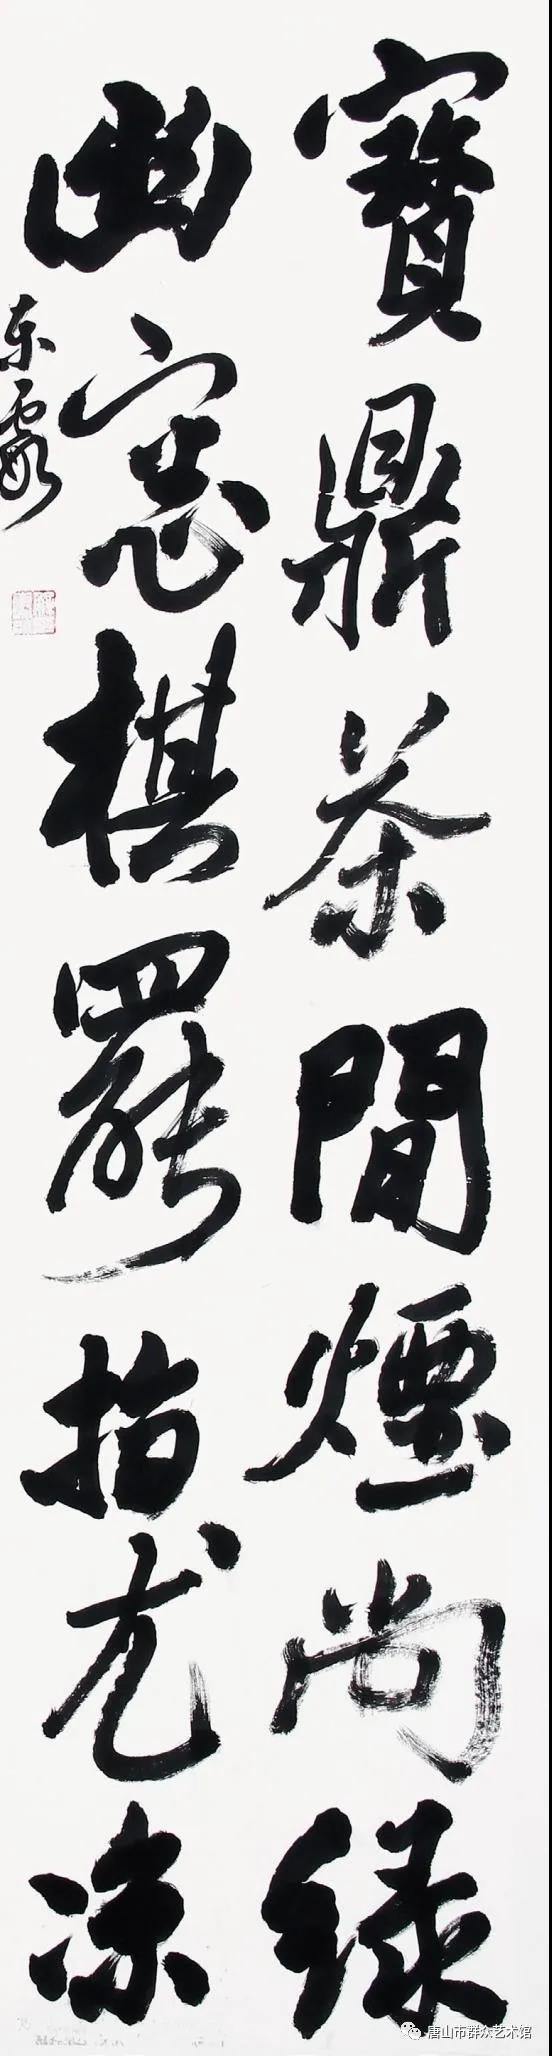 寶鼎茶閒煙尚緑
幽窓棋罷指尤涼
东霞
唐山市群众艺术馆